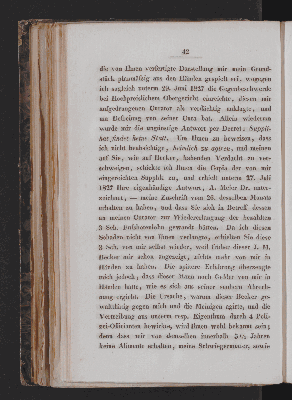 42
die von Ihnen verfertigte Darstellung mir mein Grund-
stück planmäßig aus den Händen gespielt sei, wogegen
ich sogleich unterm 29. Juni 1827 die Gegenbeschwerde
bei Hochpreislichem Obergericht einreichte, diesen mir
aufgedrungenen Curator als verdächtig anklagte, und
um Befreiung von seiner Cura bat. Allein wiederum
wurde mir die ungünstige Antwort per Decret: Suppli-
cat findet keine Statt. Um Ihnen zu beweisen, dass
ich nicht beabsichtige, heimlich zu agiren, und meinen
auf Sie, wie auf Becker, habenden Verdacht zu ver-
schweigen, schickte ich Ihnen die Copia der von mir
eingereichten Supplik zu, und erhielt unterm 27. Juli
1827 Ihre eigenhändige Antwort, A. Meier Dr. unter-
zeichnet, — meine Zuschrift vom 26. desselben Monats
erhalten zu haben, und dass Sie sich in Betreff dessen
an meinen Curator zur Wiedererlangung der bezahlten
3 Sch. Fuhrlohn gewandt hätten. Da ich diesen
Schaden nicht von Ihnen verlangte, erhielten Sie diese
3 Sch. von mir selbst wieder, weil früher dieser J. H.
Becker mir schon angezeigt, nichts mehr von mir in
Händen zu haben. Die spätere Erfahrung überzeugte
mich jedoch, dass dieser Mann noch Gelder von mir in
Händen hatte, wie es sich aus seiner saubern Abrech-
nung ergiebt. Die Ursache, warum dieser Becker ge-
waltthätig gegen mich und die Meinigen agirte, und die
Vertreibung aus unserm resp. Eigenthum durch 4 Poli-
zei-Officianten bewirkte, wird Ihnen wohl bekannt sein;
denn dass wir von demselben innerhalb 5½ Jahren
keine Alimente erhalten, meine Schwiegermutter, sowie